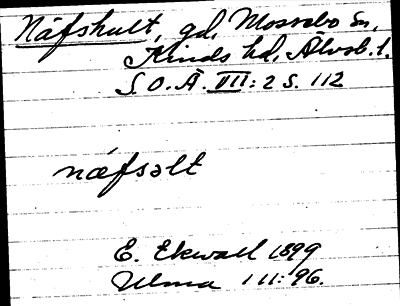 Näfshult, gd, Mossebo sn,
Kinds hd, Älvsb. l.
S.O.Ä. VII: 2 S. 112
näfsəlt
E. Ekwall 1899
Ulma 111:96.